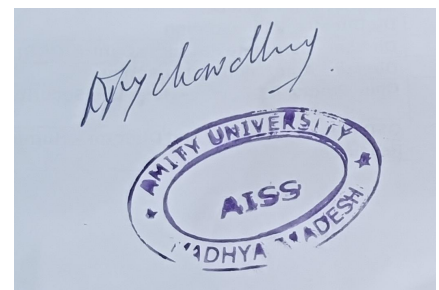 chowdhury
AMITY UNIVERSITY
AISS
MADHYA PRADESH